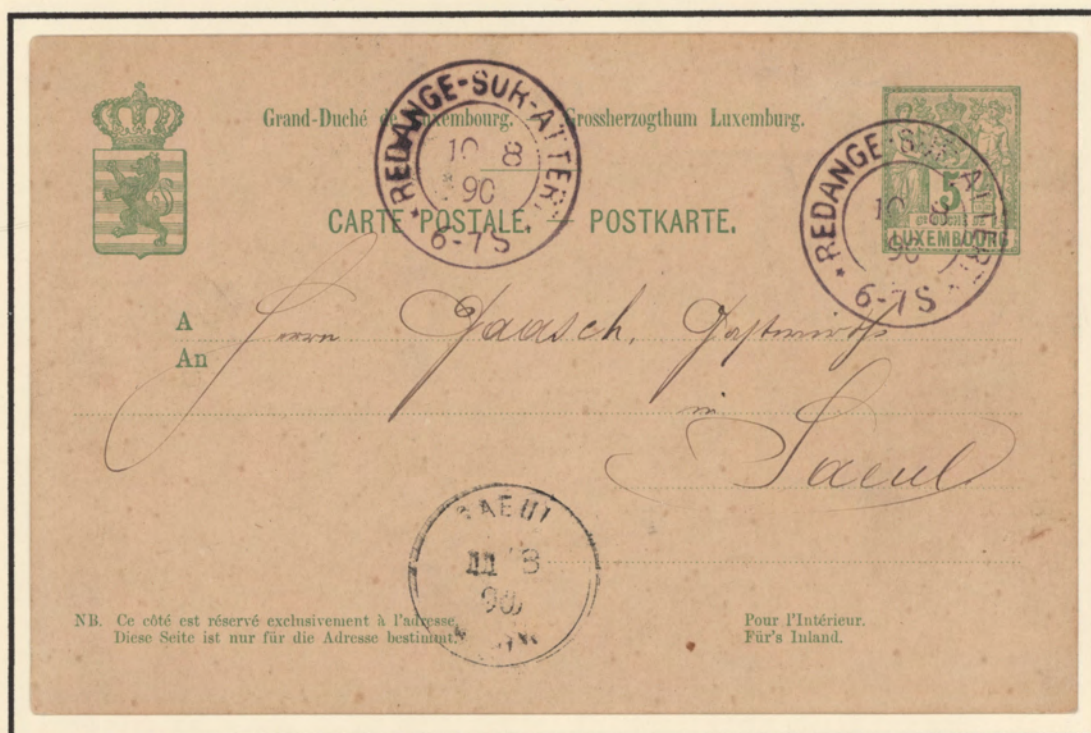 Grand-Duché de Luxembourg. Grossherzogthum Luxemburg.
REDANGE-SUR-ATTERT
10 8
90
6-7S
REDANGE-SUR-ATTERT
10 8
90
6-7S
5
CENTIMES
LUXEMBOURG
CARTE POSTALE. — POSTKARTE.
A
An
Herrn Paasch, Gastwirth
in
Saeul
SAEUL
11 8
90
NB. Ce côté est réservé exclusivement à l'adresse.
Diese Seite ist nur für die Adresse bestimmt.
Pour l'Intérieur.
Für's Inland.